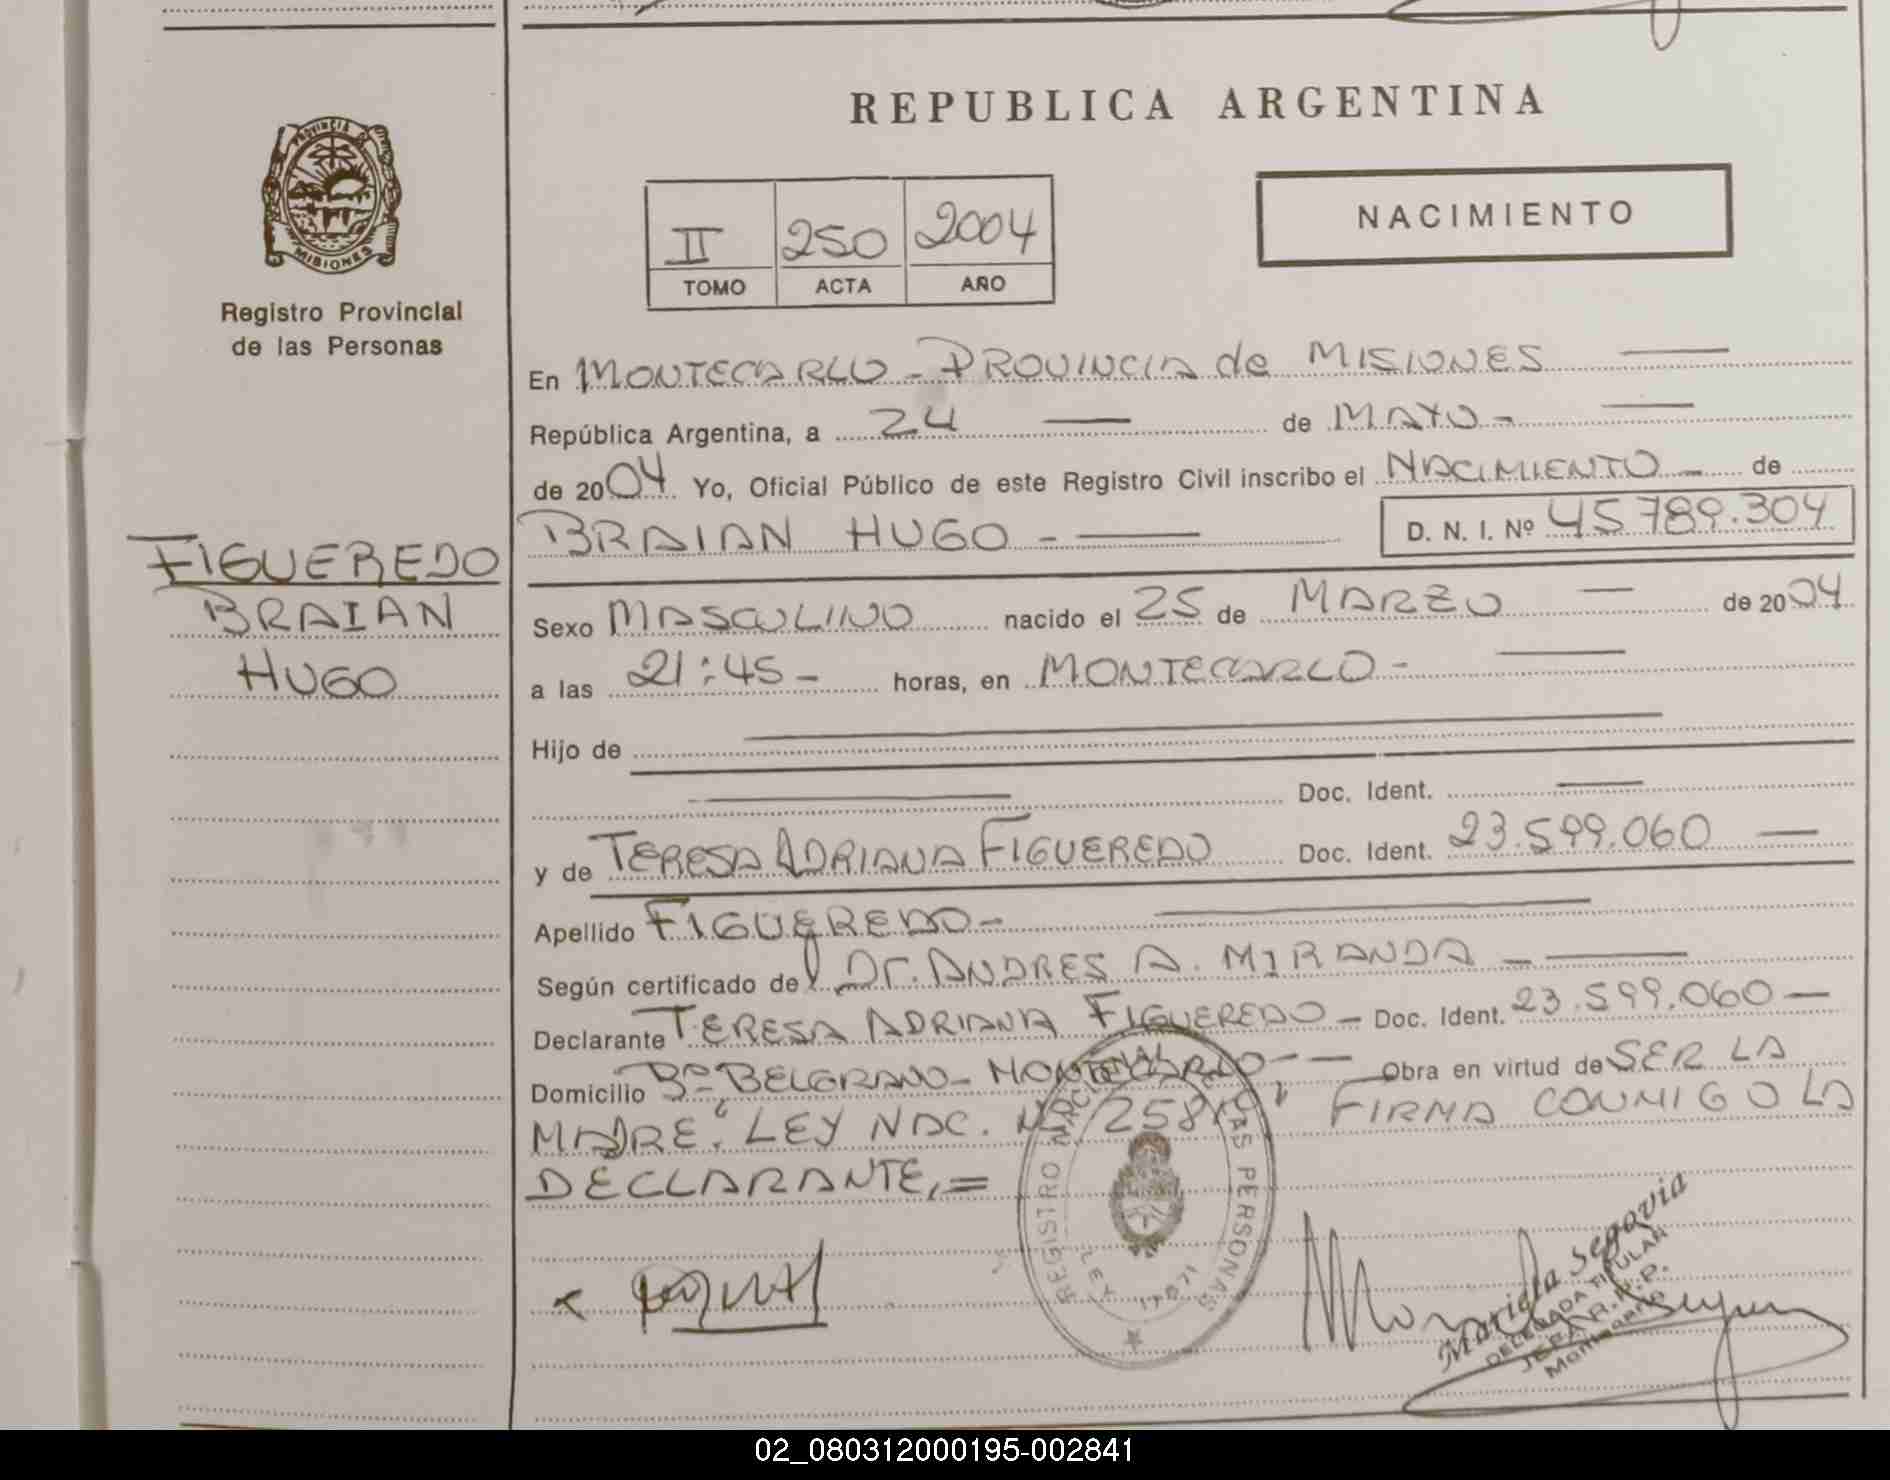 REPUBLICA ARGENTINA
PROVINCIA DE
MISIONES
Registro Provincial
de las Personas
II 250 2004
TOMO ACTA AÑO
NACIMIENTO
En MONTECARLO - PROVINCIA de MISIONES
República Argentina, a 24 de MAYO -
de 2004 Yo, Oficial Público de este Registro Civil inscribo el NACIMIENTO - de
BRAIAN HUGO - D. N. I. Nº 45789.304
FIGUEREDO
BRAIAN
HUGO
Sexo MASCULINO nacido el 25 de MARZO de 2004
a las 21:45 - horas, en MONTECARLO -
Hijo de
Doc. Ident.
y de TERESA ADRIANA FIGUEREDO Doc. Ident. 23.599.060
Apellido FIGUEREDO -
Según certificado del Dr. ANDRES A. MIRANDA -
Declarante TERESA ADRIANA FIGUEREDO - Doc. Ident. 23.599.060 -
Domicilio Bº BELGRANO - MONTECARLO - - Obra en virtud de SER LA
MADRE. "LEY NAC. Nº 25819" FIRMA CONMIGO LA
DECLARANTE.=
REGISTRO NACIONAL DE LAS PERSONAS
LEY 17.671
Mariela Segovia
DELEGADA TITULAR
JEFA R.N.P.
Montecarlo
02_080312000195-002841